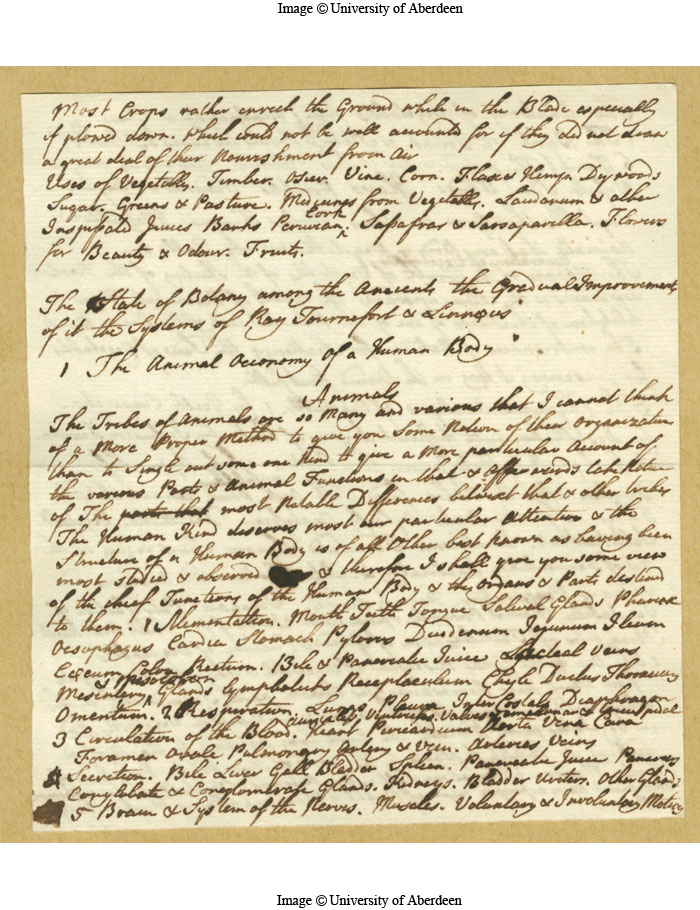 Image © University of Aberdeen
Most Crops rather enrich the Ground while in the Blade especially
if plowed down. which could not be well accounted for if they did not draw
a great deal of their Nourishment from Air
Uses of Vegetably. Timber. Osier. Vine. Corn. Flax & Hemp. Dywoods
Sugar. Greens & Pasture. Medicines from Vegetably. Laudanum & other
Inspissated Juices Barks Peruvian Cork ^. Sassafras & Sarsaparella. Flowers
for Beauty & Odour. Fruits.
The State of Botany among the Ancients the Gradual Improvement
of it the Systems of Ray Tournefort & Linneus
1 The Animal Oeconomy of a Human Body
Animals
The Tribes of Animals are so Many and various that I cannot think
of a More Proper Method to give you Some Notion of their Organization
than to Single out some one Kind to give a More particular Account of
the various Parts & Animal Functions in that & afterwards take Notice
of The parts that most Notable Differences betwixt that & other tribes
The Human Kind deserves most our particular Attention & the
Structure of a Human Body is of all Other best known as having been
most studied & observed & therefore I shall give you some view
of the chief Functions of the Human Body & the Organs & Parts destind
to them. 1 Alimentation. Mouth Teeth Tongue Salival Glands Pharinx
Oesophagus Cardia Stomach Pylorus Duodenum Jejunum Ileum
Cœcum Colon Rectum. Bile & Pancreatic Juice Lacteal Veins
Mesentery ^ Glands Lymphaticks Receptaculum Chyle Ductus Thoracicus
Omentum. 2 Respiration. Lungs Pleura Inter Costals Diaphragm
3 Circulation of the Blood. Heart Auricles, Ventricles. Valves Pericardium Aorta Vena Cava
Foramen Ovale Pulmonary Artery & Vein. Arteries Veins
4 Secretion. Bile Liver Gall Bladder Spleen. Pancreatic Juice Pancreas
Conglobate & Conglomerate Glands. Kidneys. Bladder Ureters. Other Glands
5 Brain & System of the Nerves. Muscles. Voluntary & Involuntary Motion
Image © University of Aberdeen